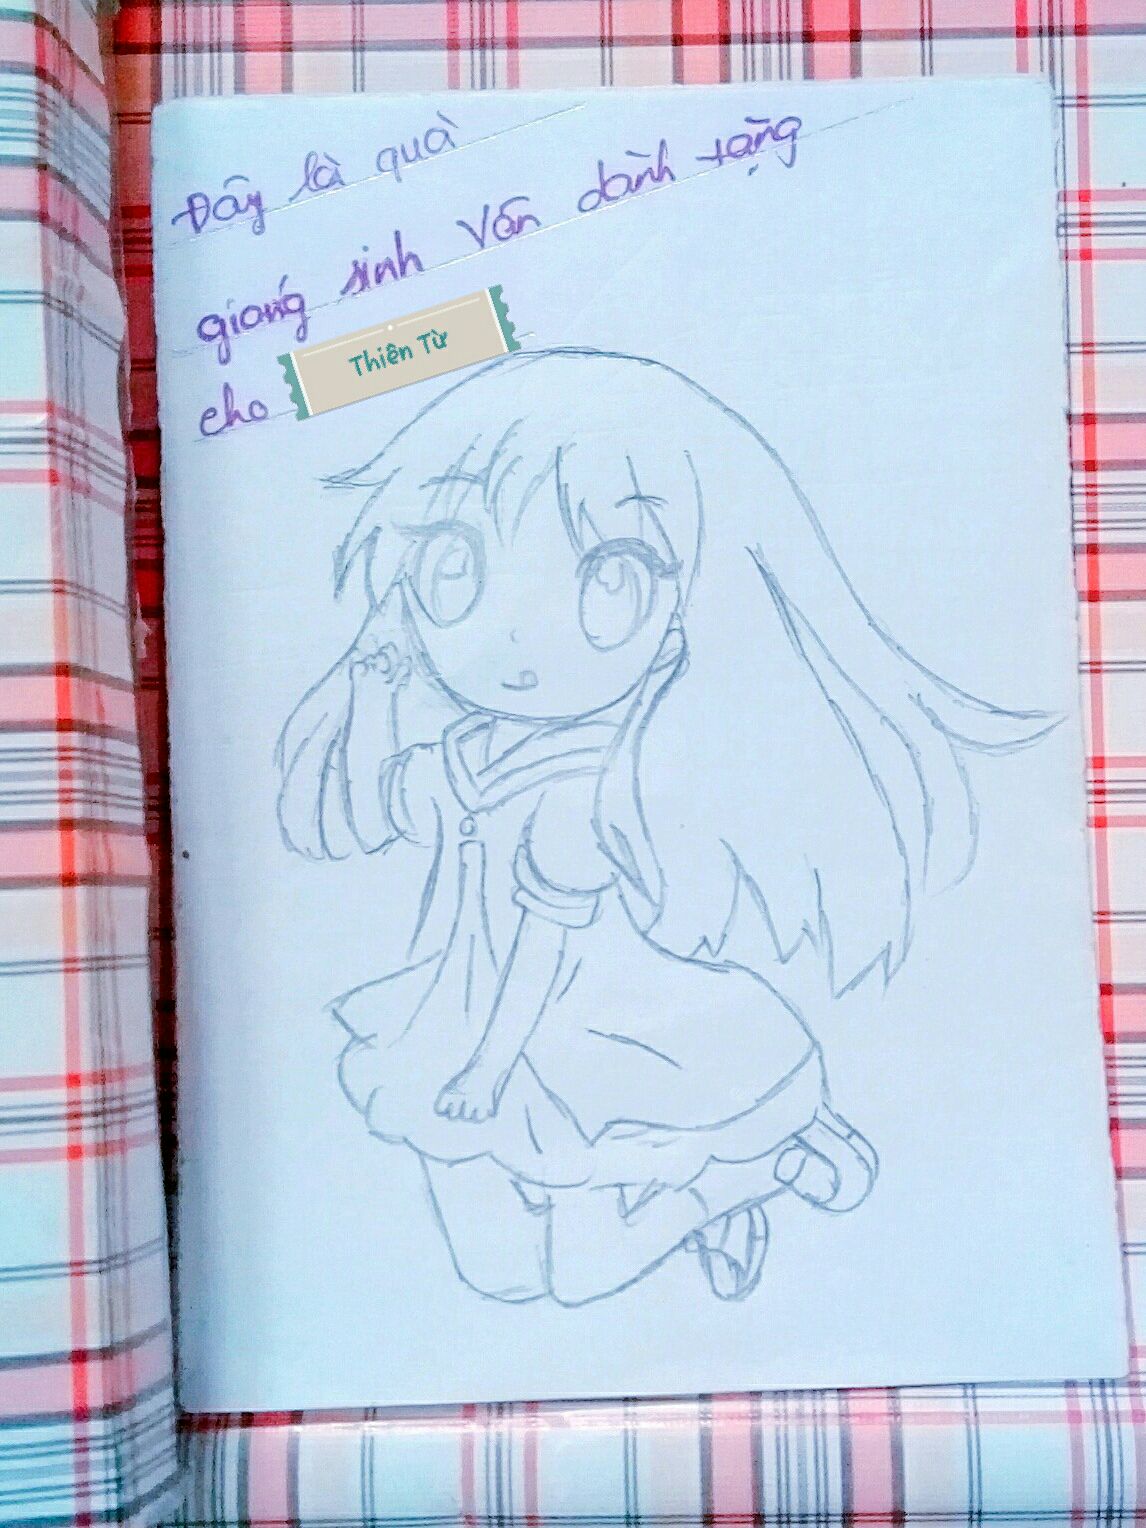 Đây là quà
giáng sinh Vân dành tặng
cho Thiên Từ